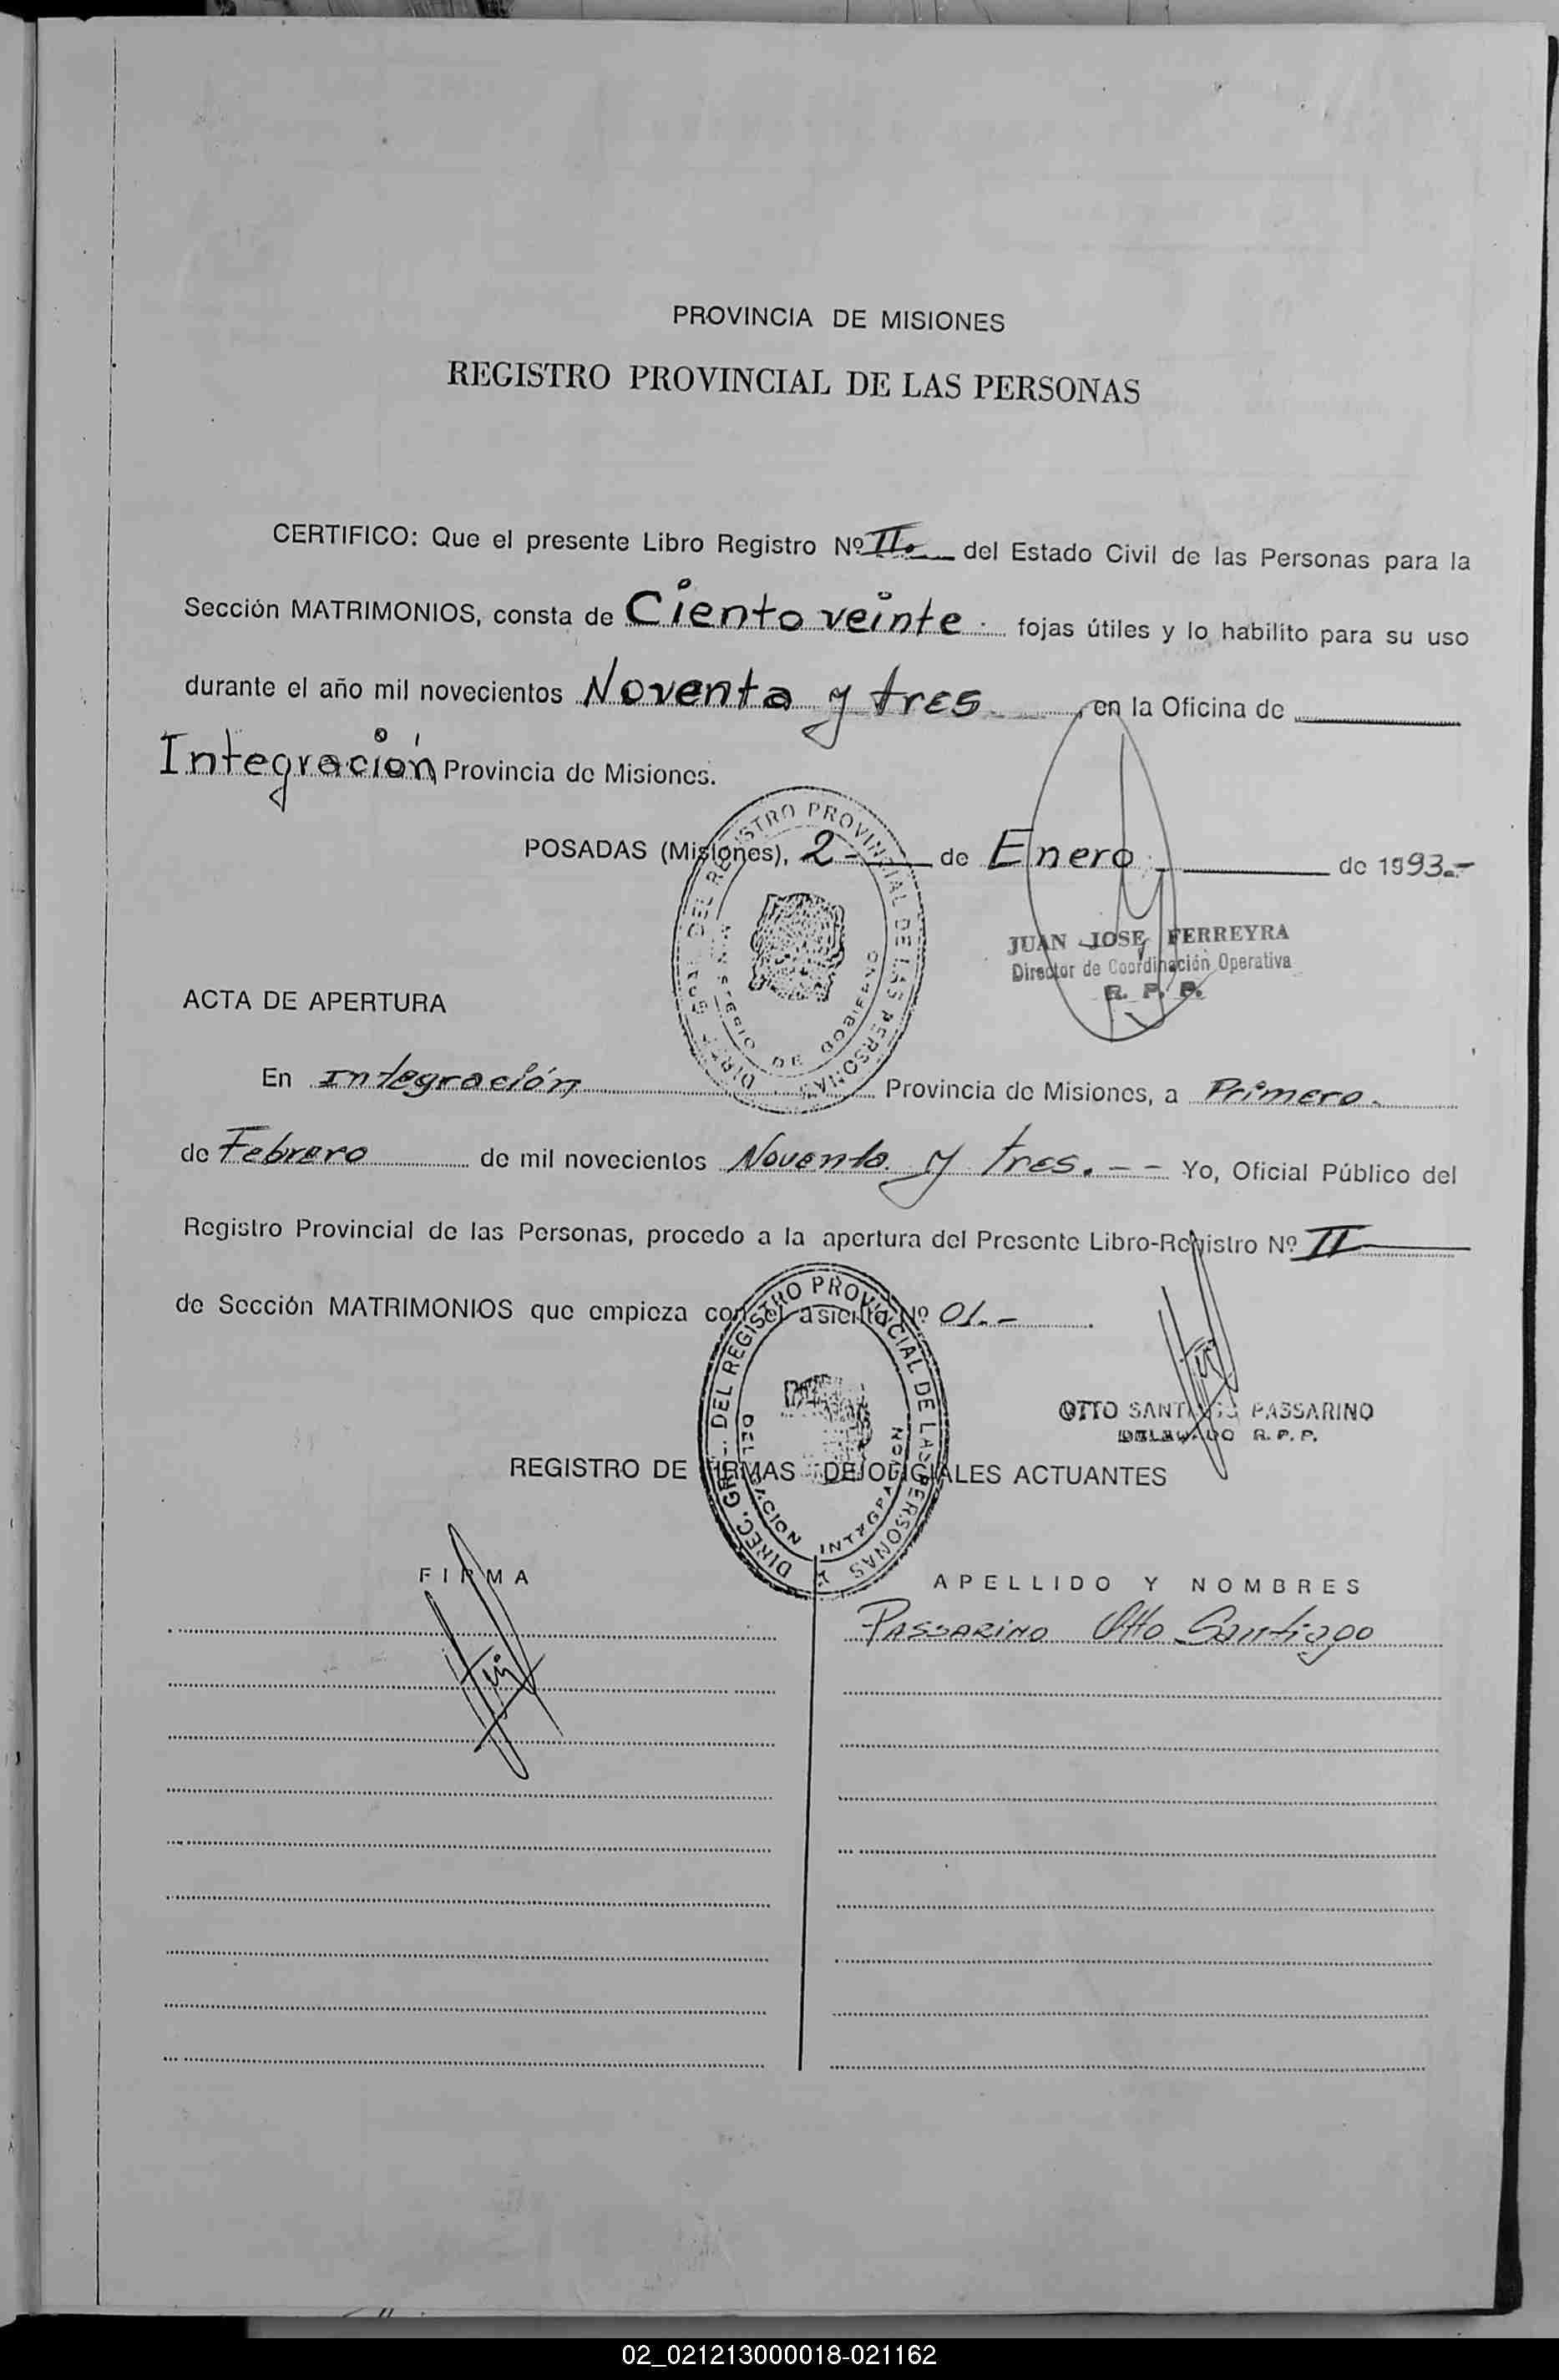 PROVINCIA DE MISIONES
REGISTRO PROVINCIAL DE LAS PERSONAS
CERTIFICO: Que el presente Libro Registro Nº II. del Estado Civil de las Personas para la
Sección MATRIMONIOS, consta de Ciento veinte. fojas útiles y lo habilito para su uso
durante el año mil novecientos Noventa y tres. , en la Oficina de
Integración Provincia de Misiones.
POSADAS (Misiones), 2- de Enero. de 1993.-
JUAN JOSE FERREYRA
Director de Coordinación Operativa
R. P. P.
DEL REGISTRO PROVINCIAL DE LAS PERSONAS
DE GOBIERNO
ACTA DE APERTURA
En Integración Provincia de Misiones, a Primero.
de Febrero de mil novecientos Noventa y tres. - - Yo, Oficial Público del
Registro Provincial de las Personas, procedo a la apertura del Presente Libro-Registro Nº II
de Sección MATRIMONIOS que empieza con el asiento Nº 01.-
OTTO SANTIAGO PASSARINO
DELEGADO R. P. P.
DIREC. GRAL. DEL REGISTRO PROVINCIAL DE LAS PERSONAS
DELEGACION INTEGRACION
REGISTRO DE FIRMAS DE OFICIALES ACTUANTES
FIRMA
APELLIDO Y NOMBRES
PASSARINO Otto Santiago
02_021213000018-021162